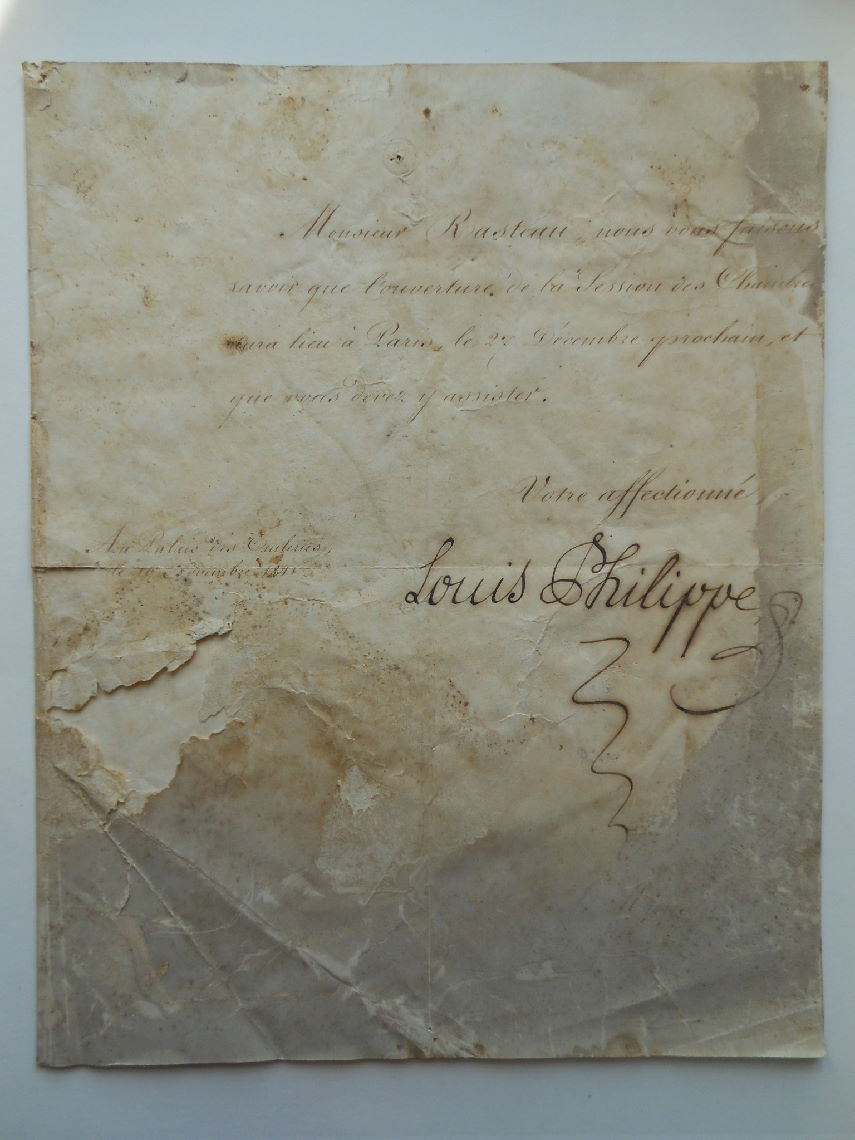 Monsieur Rasteau, nous vous faisons
savoir que l'ouverture de la Session des Chambres
aura lieu à Paris, le 27 Décembre prochain, et
que vous devez y assister.
Votre affectionné
Au Palais des Tuileries,
le 16 Novembre
Louis Philippe